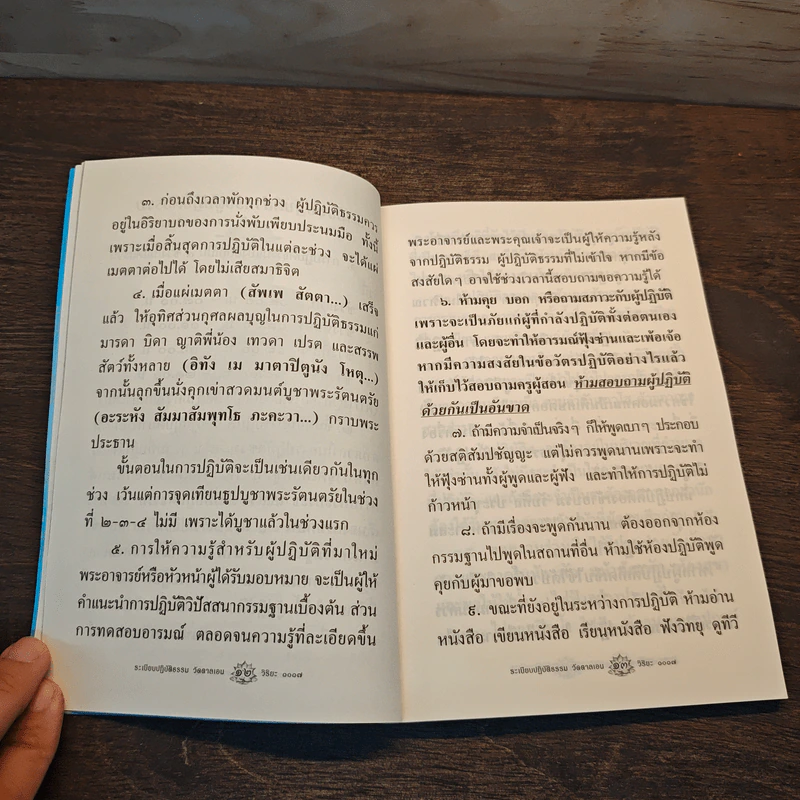 ๓. ก่อนถึงเวลาพักทุกช่วง ผู้ปฏิบัติธรรมควร
อยู่ในอิริยาบถของการนั่งพับเพียบประนมมือ ทั้งนี้
เพราะเมื่อสิ้นสุดการปฏิบัติในแต่ละช่วง จะได้แผ่
เมตตาต่อไปได้ โดยไม่เสียสมาธิจิต
๔. เมื่อแผ่เมตตา (สัพเพ สัตตา...) เสร็จ
แล้ว ให้อุทิศส่วนกุศลผลบุญในการปฏิบัติธรรมแก่
มารดา บิดา ญาติพี่น้อง เทวดา เปรต และสรรพ
สัตว์ทั้งหลาย (อิทัง เม มาตาปิตูนัง โหตุ...)
จากนั้นลุกขึ้นนั่งคุกเข่าสวดมนต์บูชาพระรัตนตรัย
(อะระหัง สัมมาสัมพุทโธ ภะคะวา...) กราบพระ
ประธาน
ขั้นตอนในการปฏิบัติจะเป็นเช่นเดียวกันในทุก
ช่วง เว้นแต่การจุดเทียนธูปบูชาพระรัตนตรัยในช่วง
ที่ ๒-๓-๔ ไม่มี เพราะได้บูชาแล้วในช่วงแรก
๕. การให้ความรู้สำหรับผู้ปฏิบัติที่มาใหม่
พระอาจารย์หรือหัวหน้าผู้ได้รับมอบหมาย จะเป็นผู้ให้
คำแนะนำการปฏิบัติวิปัสสนากรรมฐานเบื้องต้น ส่วน
การทดสอบอารมณ์ ตลอดจนความรู้ที่ละเอียดขึ้น
ระเบียบปฏิบัติธรรม วัดตาลเอน ๑๒ วิริยะ ๑๐๐๗
พระอาจารย์และพระคุณเจ้าจะเป็นผู้ให้ความรู้หลัง
จากปฏิบัติธรรม ผู้ปฏิบัติธรรมที่ไม่เข้าใจ หากมีข้อ
สงสัยใดๆ อาจใช้ช่วงเวลานี้สอบถามขอความรู้ได้
๖. ห้ามคุย บอก หรือถามสภาวะกับผู้ปฏิบัติ
เพราะจะเป็นภัยแก่ผู้ที่กำลังปฏิบัติทั้งต่อตนเอง
และผู้อื่น โดยจะทำให้อารมณ์ฟุ้งซ่านและเพ้อเจ้อ
หากมีความสงสัยในข้อวัตรปฏิบัติอย่างไรแล้ว
ให้เก็บไว้สอบถามครูผู้สอน ห้ามสอบถามผู้ปฏิบัติ
ด้วยกันเป็นอันขาด
๗. ถ้ามีความจำเป็นจริงๆ ก็ให้พูดเบาๆ ประกอบ
ด้วยสติสัมปชัญญะ แต่ไม่ควรพูดนานเพราะจะทำ
ให้ฟุ้งซ่านทั้งผู้พูดและผู้ฟัง และทำให้การปฏิบัติไม่
ก้าวหน้า
๘. ถ้ามีเรื่องจะพูดกันนาน ต้องออกจากห้อง
กรรมฐานไปพูดในสถานที่อื่น ห้ามใช้ห้องปฏิบัติพูด
คุยกับผู้มาขอพบ
๙. ขณะที่ยังอยู่ในระหว่างการปฏิบัติ ห้ามอ่าน
หนังสือ เขียนหนังสือ เรียนหนังสือ ฟังวิทยุ ดูทีวี
ระเบียบปฏิบัติธรรม วัดตาลเอน ๑๓ วิริยะ ๑๐๐๗